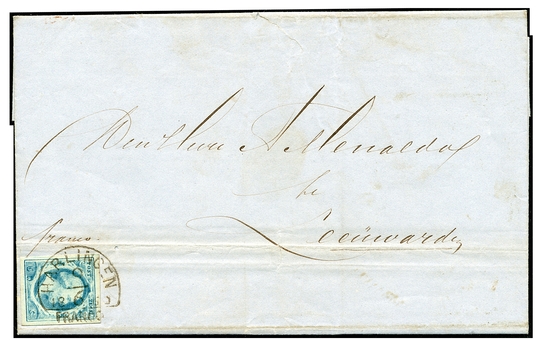 Den Heer A Menalda
te
Leeuwarden
franco
HARLINGEN
FRANCO